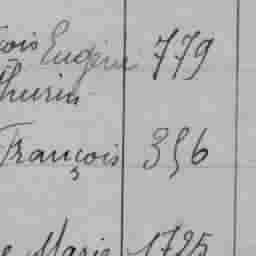 çois Eugène 779
thurin
François 356
Marie 1725